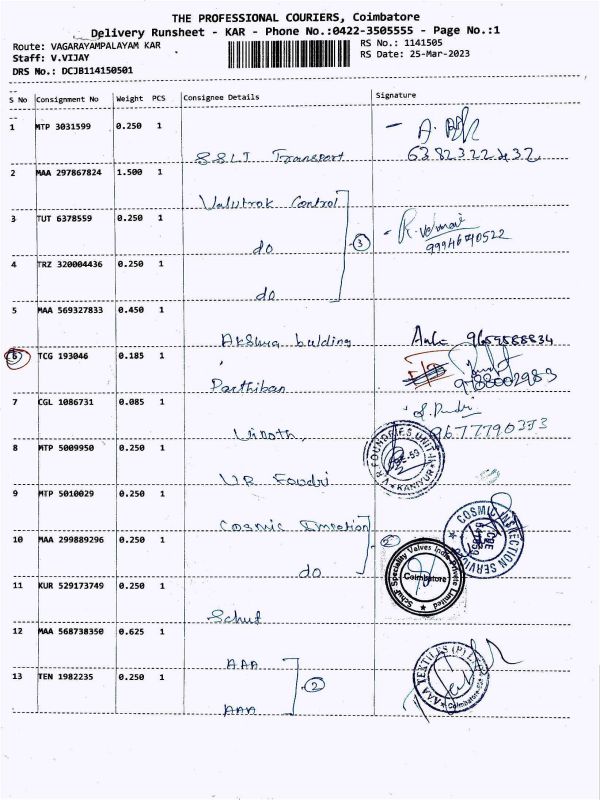 THE PROFESSIONAL COURIERS, Coimbatore
Delivery Runsheet - KAR - Phone No.:0422-3505555 - Page No.:1
Route: VAGARAYAMPALAYAM KAR
RS No.: 1141505
Staff: V.VIJAY
RS Date: 25-Mar-2023
DRS No.: DCJB114150501
S No Consignment No Weight PCS Consignee Details Signature
1 MTP 3031599 0.250 1
SSLT Transport 6382322432
2 MAA 297867824 1.500 1
Valutrok Control
3 TUT 6378559 0.250 1
do 3 9994640522
4 TRZ 320004436 0.250 1
do
5 MAA 569327833 0.450 1
Akshya bulding 9659588834
6 TCG 193046 0.185 1
Parthiban 9788002983
7 CGL 1086731 0.085 1
Vinoth, 9677790373
8 MTP 5009950 0.250 1
V.R.V FOUNDRIES UNIT-II KANIYUR
VR Foudri
9 MTP 5010029 0.250 1
Cosmic COSMIC INSPECTION SERVICES
10 MAA 299889296 0.250 1
do 2
11 KUR 529173749 0.250 1
Schuf Speciality Valves India Private Limited Coimbatore
Schuf
12 MAA 568738350 0.625 1
AAA AAA TEXTILES (P) LTD Coimbatore
13 TEN 1982235 0.250 1 2
AAA